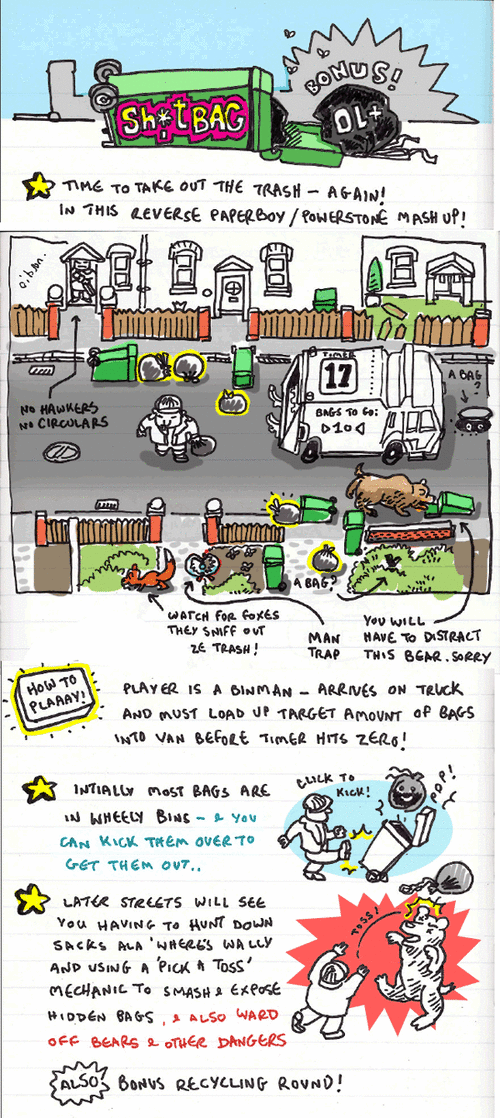 BONUS!
Sh*tBAG
OL+
TIME TO TAKE OUT THE TRASH – AGAIN!
IN THIS REVERSE PAPERBOY / POWERSTONE MASH UP!
TIMER
17
BAGS TO GO:
▷10◁
A BAG
?
NO HAWKERS
NO CIRCULARS
A BAG?
WATCH FOR FOXES
THEY SNIFF OUT
ZE TRASH!
MAN
TRAP
YOU WILL
HAVE TO DISTRACT
THIS BEAR. SORRY
HOW TO
PLAAAY!
PLAYER IS A BINMAN – ARRIVES ON TRUCK
AND MUST LOAD UP TARGET AMOUNT OF BAGS
INTO VAN BEFORE TIMER HITS ZERO!
INTIALLY MOST BAGS ARE
IN WHEELY BINS – & YOU
CAN KICK THEM OVER TO
GET THEM OUT..
CLICK TO
KICK!
POP!
LATER STREETS WILL SEE
YOU HAVING TO HUNT DOWN
SACKS ALA 'WHERE'S WALLY
AND USING A 'PICK & TOSS'
MECHANIC TO SMASH & EXPOSE
HIDDEN BAGS, & ALSO WARD
OFF BEARS & OTHER DANGERS
TOSS!
ALSO BONUS RECYCLING ROUND!